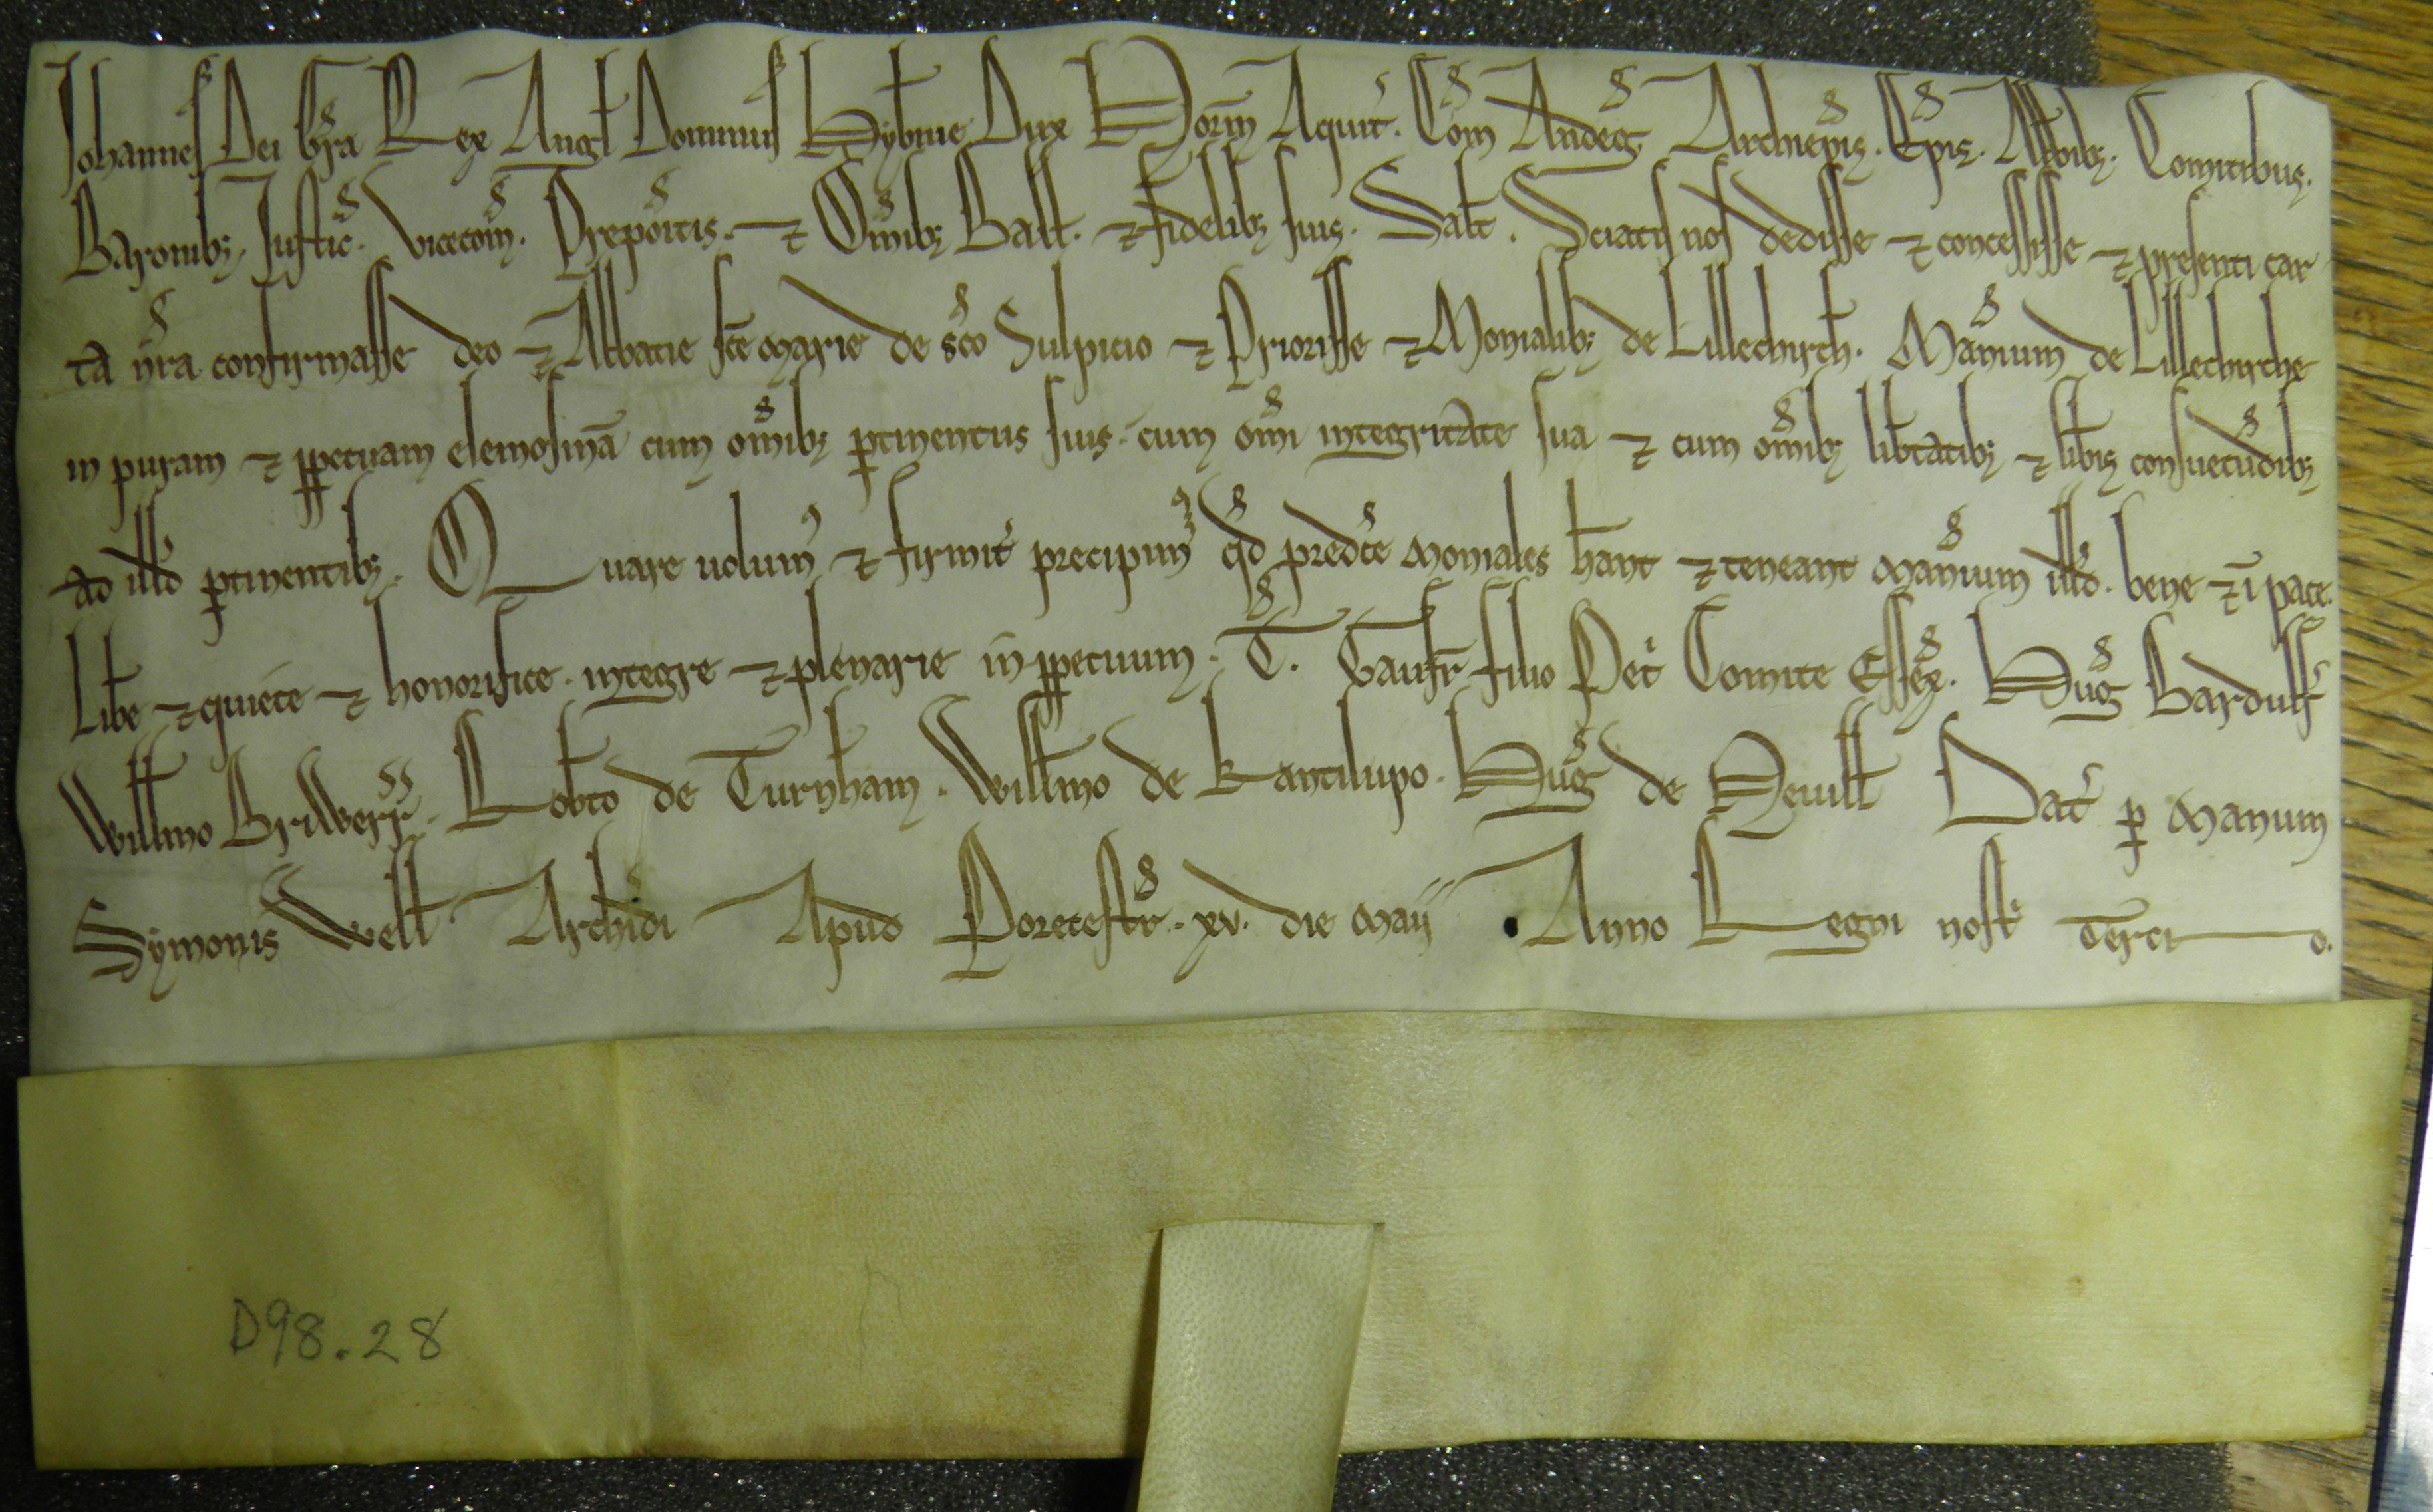 Johannes Dei Gra Rex Angl Dominus Hybnie Dux Norm Aquit. Com Andeg. Archiepis. Epis. Abbibȝ. Comitibus.
Baronibȝ, Justic. Vicecom. Prepoitis. ⁊ Omibȝ Ball. ⁊ fidelibȝ suis. Salt. Sciatis nos dedisse ⁊ concessisse ⁊ presenti car
ta nra confirmasse deo ⁊ Abbatie sce Marie de sco Sulpicio ⁊ Priorisse ⁊ Monialibȝ de Lillechirch. Manium de Lillechirche
in puram ⁊ ppetuam elemosina cum omibȝ ptinentiis suis. cum omi integritate sua ⁊ cum omibȝ libtatibȝ ⁊ libis consuetudibȝ
ad illd ptinentibȝ. Quare uolum⁹ ⁊ firmit precipim⁹ qd predce Moniales hant ⁊ teneant Manium illd. bene ⁊ i pace.
Libe ⁊ quiete ⁊ honorifice. integre ⁊ plenarie in ppetuum. T. Gaufr filio Pet Comite Essex. Hug Bardulf
Willmo Briwerr. Robto de Turnham. Willmo de Kantilupo. Hug de Nevill Dat p Manum
Symonis Well Archidi Apud Porecestr. xv. die Maij. Anno Regni nost Tercio.
D98.28